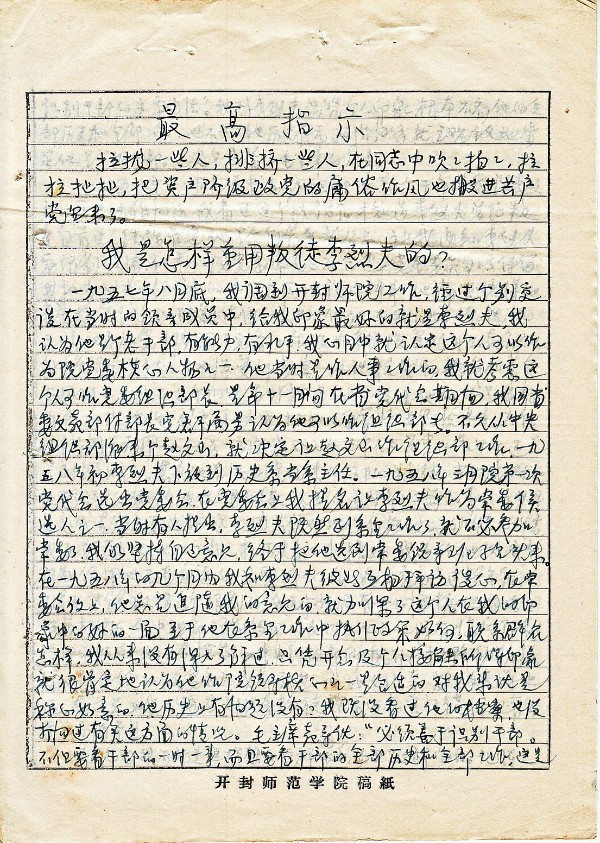 最高指示
拉拢一些人，排挤一些人，在同志中吹吹拍拍，拉
拉扯扯，把资产阶级政党的庸俗作风也搬进共产
党里来了。
我是怎样重用叛徒李烈夫的？
一九五七年八月底，我调到开封师院工作，经过个别交
谈在当时的领导成员中，给我印象最好的就是李烈夫，我
认为他是个老干部，有能力，有水平，我心目中就认定这个人可以作
为院党委核心人物之一。他当时是作人事工作的，我就考虑这
个人可作党委组织部长。是年十一月间在省党代会期间，我同省
委文教部付部长 商量认为他可以作组织部长。不久从中央
组织部 来个赵文山，就决定让赵文山作组织部工作。一九
五八年初李烈夫下放到历史系当系主任。一九五八年三月院第一次
党代会选出党委会，在党委会上我提名让李烈夫作为常委候
选人之一，当时有人提出，李烈夫既然到系里工作了，就不必参加
常委了，我仍坚持自己意见，终于把他选到常委
在一九五八年的几个月内我和李烈夫彼此互相拜访谈心，在党
委会议上，他总是追随我的意见的，就加深了这个人在我的印
象中的好的一面。至于他在系里工作中执行政策如何，联系群众
怎样，我从来没有深入了解过，只凭开会及个人接触所得印象
就很肯定地认为他作个 是合适的，对我来说是
称心如意的，他历史上有问题没有？我既没看过他的档案，也没
打问过有关这方面的情况。毛主席教导我们：“必须善于识别干部。
不但要看干部的一时一事，而且要看干部的全部历史和全部工作，这是
开封师范学院稿紙